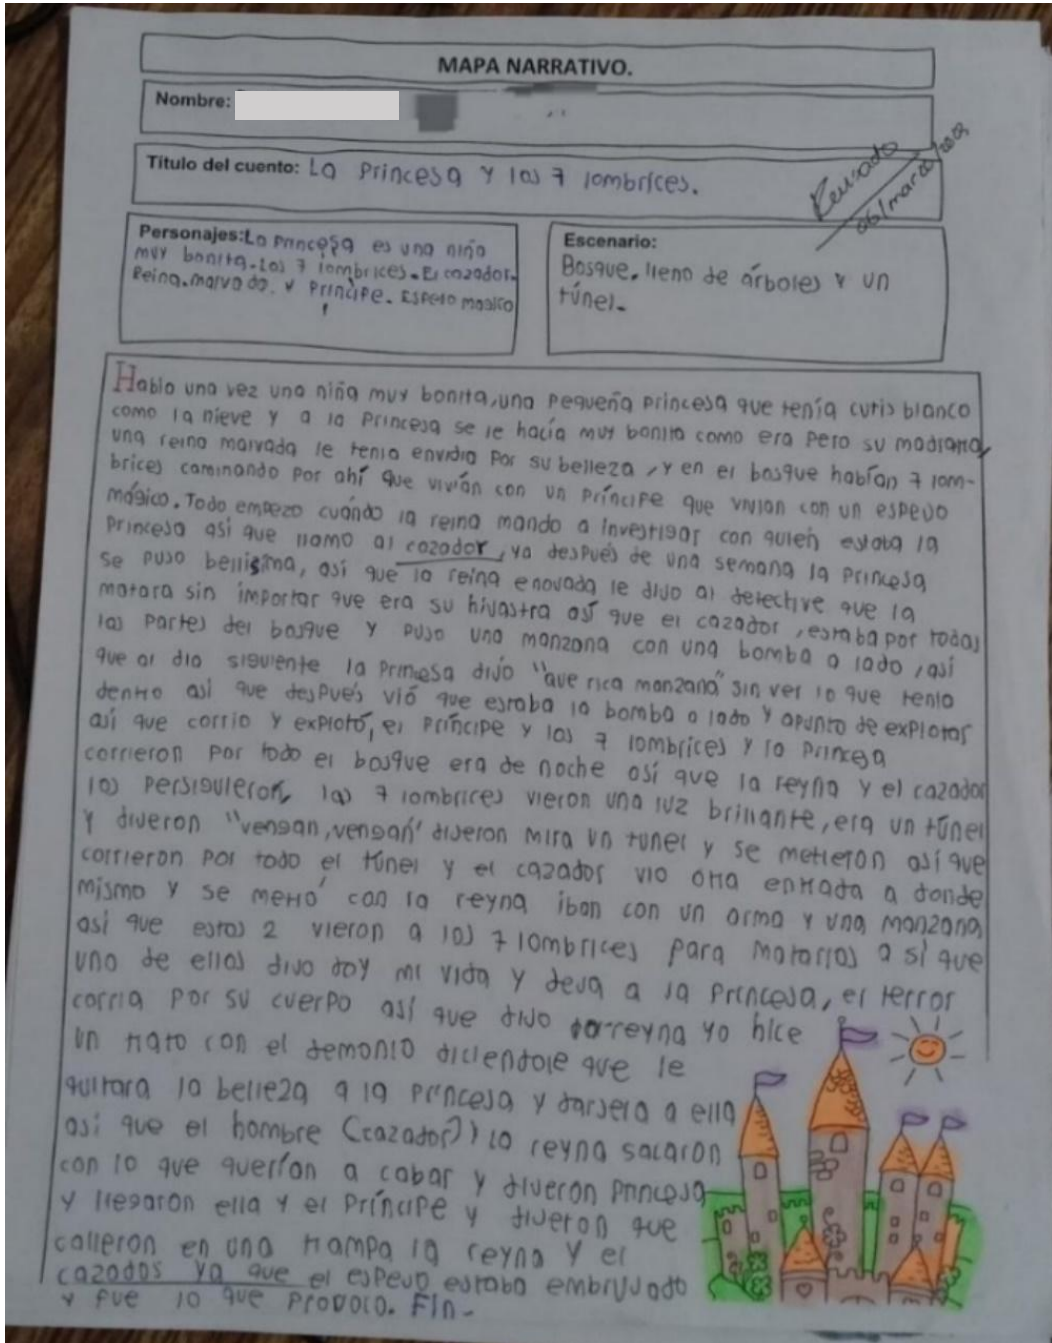 MAPA NARRATIVO.
Nombre:
Título del cuento: La Princesa y las 7 lombrices.
Revisado
06/marzo/2023
Personajes: La princesa es una niña
muy bonita. Las 7 lombrices. El cazador.
Reina. marvada. y Príncipe. Espejo magico
Escenario:
Bosque, lleno de árboles y un
túnel.
Hablo una vez una niña muy bonita, una pequeña princesa que tenía cutis blanco
como la nieve y a la Princesa se le hacía muy bonito como era pero su madrastra,
una reina malvada le tenia envidia por su belleza, y en el bosque habían 7 lom-
brices caminando por ahí que vivían con un príncipe que vivian con un espejo
mágico. Todo empezo cuándo la reina mando a investigar con quien estaba la
Princesa así que llamo al cazador, ya después de una semana la Princesa
se puso bellisima, así que la reina enovada le dijo al detective que la
matara sin importar que era su hijastra así que el cazador, estaba por todas
las partes del bosque y puso una manzana con una bomba a lado, así
que al dia siguiente la princesa dijo "que rica manzana" sin ver lo que tenia
dentro asi que después vió que estaba la bomba a lado y apunto de explotar
así que corrio y explotó, el Príncipe y las 7 lombrices y la Princesa
corrieron por todo el bosque era de noche así que la reyna y el cazador
los persiguieron, las 7 lombrices vieron una luz brillante, era un túnel
y dijeron "vengan, vengan" dijeron mira un tunel y se metieron así que
corrieron por todo el túnel y el cazador vio otra entrada a donde
mismo y se metió con la reyna iban con un arma y una manzana
así que estos 2 vieron a las 7 lombrices para matarlas a sí que
uno de ellos dijo doy mi vida y deja a la princesa, el terror
corria por su cuerpo así que dijo la reyna yo hice
un trato con el demonio diciendole que le
quitara la belleza a la princesa y darsela a ella
así que el hombre (cazador) y la reyna sacaron
con lo que querían a cabar y dijeron princesa
y llegaron ella y el Príncipe y dijeron que
calleron en una trampa la reyna y el
cazados ya que el espejo estaba embrujado
y fue lo que provoco. Fin.